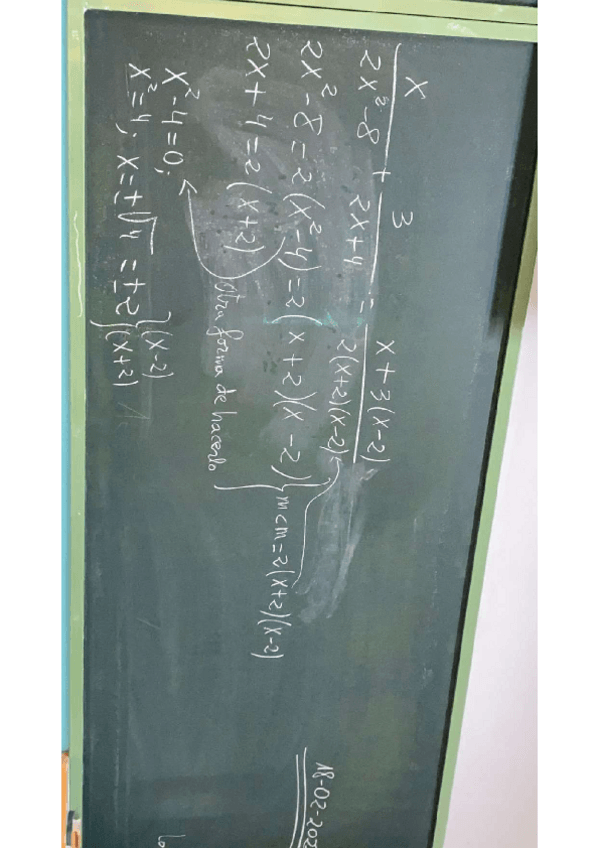 x/(2x²-8) + 3/(2x+4) = (x+3(x-2))/(2(x+2)(x-2))
2x²-8=2(x²-4)=2(x+2)(x-2)
2x+4=2(x+2)
mcm=2(x+2)(x-2)
otra forma de hacerlo
x²-4=0;
x²=4; x=±√4=±2 {(x-2) (x+2)
18-02-202